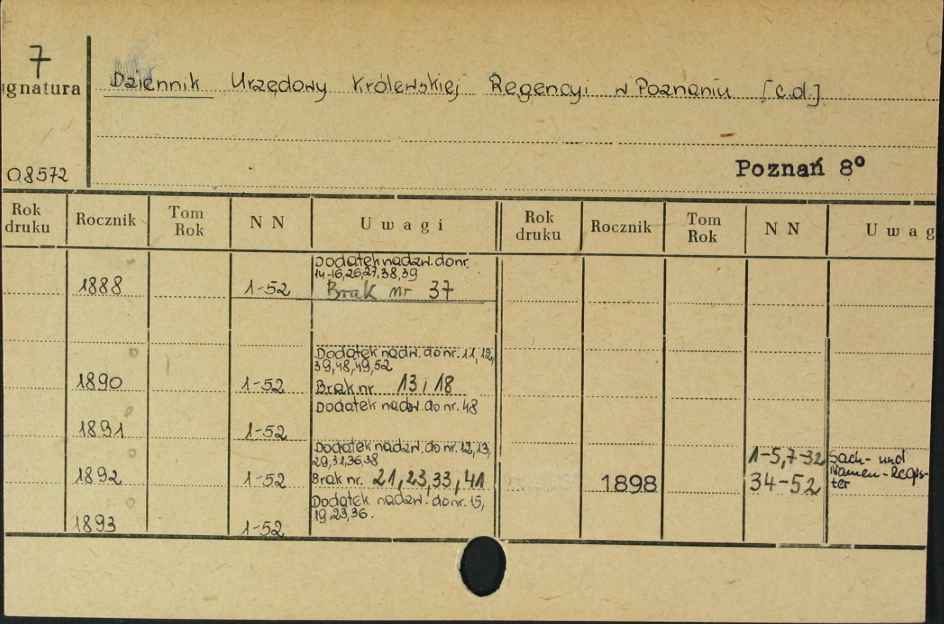 7
ignatura
Dziennik Urzędowy Królewskiej Regencyi w Poznaniu [c.d.]
08572
Poznań 8°
Rok druku Rocznik Tom Rok N N Uwagi Rok druku Rocznik Tom Rok N N Uwag
Dodatek nadzw. do nr.
14-16,26,27,38,39
1888 1-52 Brak nr 37
Dodatek nadzw. do nr. 11,12,
39,48,49,52
1890 1-52 Brak nr. 13 i 18
Dodatek nadzw. do nr. 48
1891 1-52
Dodatek nadzw. do nr. 12,13,
29,31,36,38
1892 1-52 Brak nr. 21,23,33,41
Dodatek nadzw. do nr. 15,
19,23,36.
1893 1-52
1-5,7-32 Sach- und
1898 34-52 Namen-Regis-
ter